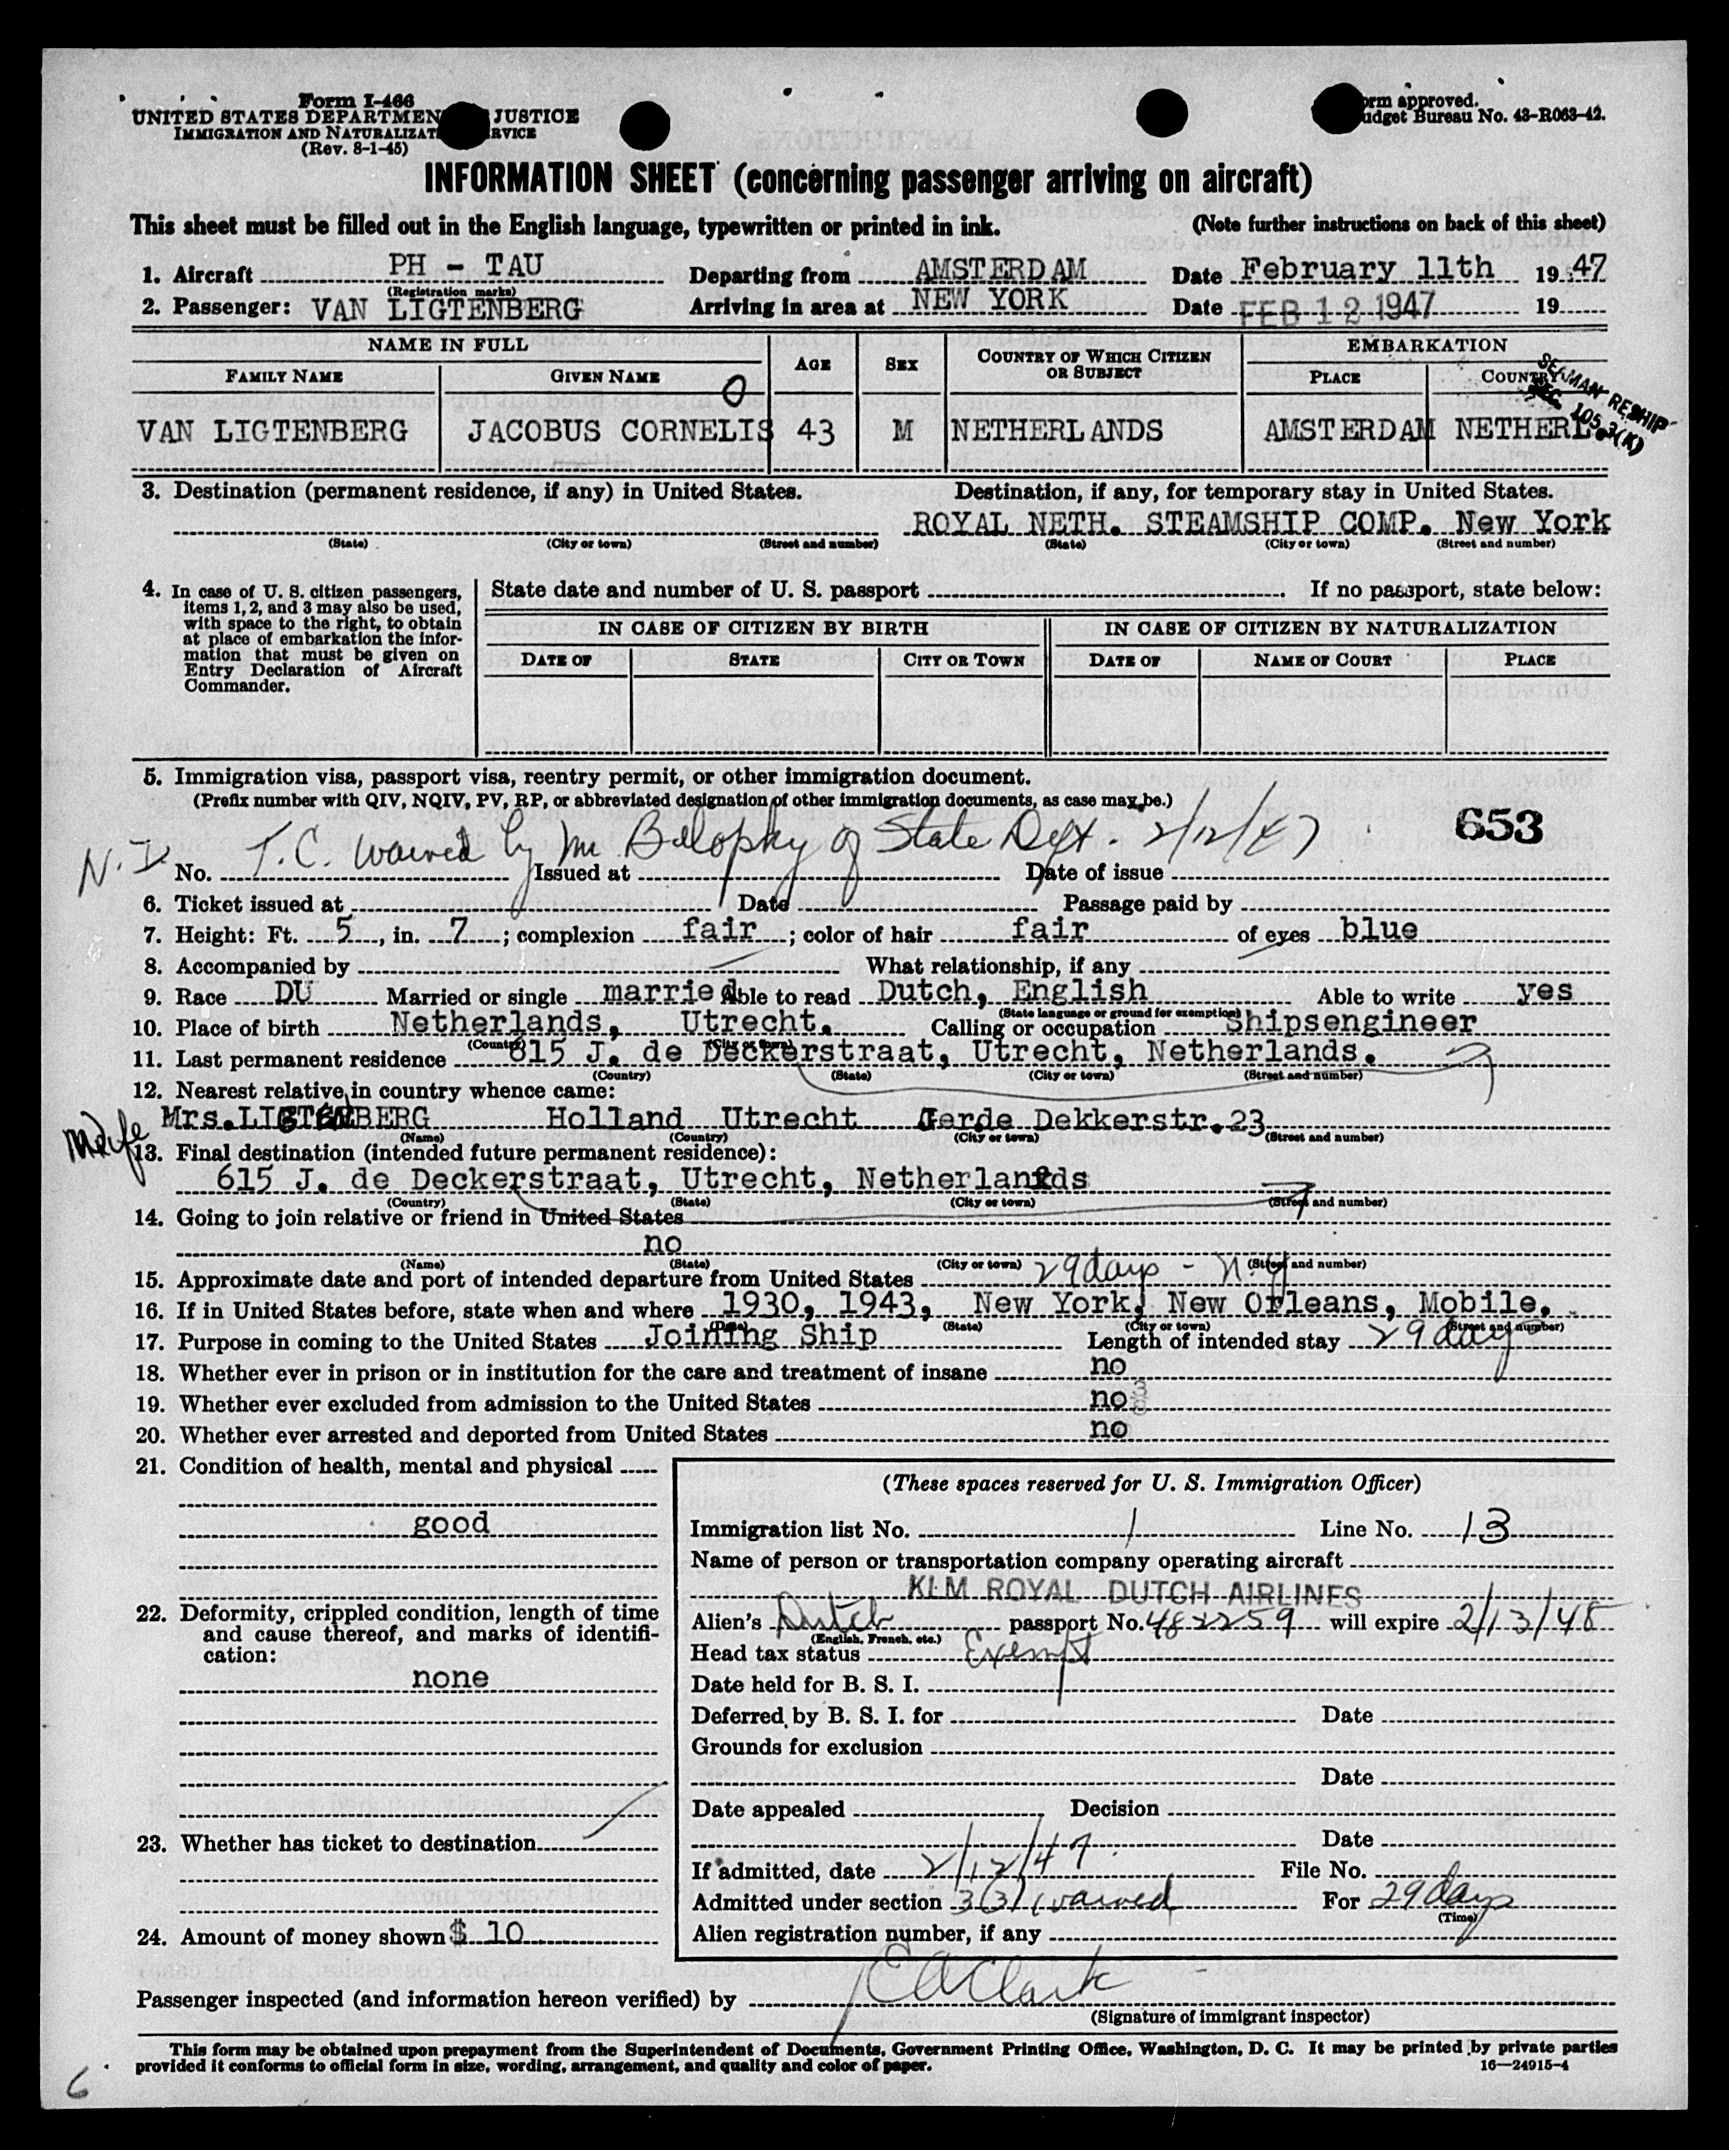 Form I-466
UNITED STATES DEPARTMEN JUSTICE
IMMIGRATION AND NATURALIZAT RVICE
(Rev. 8-1-45)
orm approved.
udget Bureau No. 43-R063-42.
INFORMATION SHEET (concerning passenger arriving on aircraft)
This sheet must be filled out in the English language, typewritten or printed in ink. (Note further instructions on back of this sheet)
1. Aircraft PH - TAU Departing from AMSTERDAM Date February 11th 1947
(Registration marks)
2. Passenger: VAN LIGTENBERG Arriving in area at NEW YORK Date FEB 12 1947 19
NAME IN FULL AGE SEX COUNTRY OF WHICH CITIZEN OR SUBJECT EMBARKATION
FAMILY NAME GIVEN NAME PLACE COUNTRY
0
SEAMAN RESHIP
SEC. 105.3(K)
VAN LIGTENBERG JACOBUS CORNELIS 43 M NETHERLANDS AMSTERDAM NETHERL.
3. Destination (permanent residence, if any) in United States. Destination, if any, for temporary stay in United States.
ROYAL NETH. STEAMSHIP COMP. New York
(State) (City or town) (Street and number) (State) (City or town) (Street and number)
4. In case of U. S. citizen passengers, items 1, 2, and 3 may also be used, with space to the right, to obtain at place of embarkation the information that must be given on Entry Declaration of Aircraft Commander.
State date and number of U. S. passport If no passport, state below:
IN CASE OF CITIZEN BY BIRTH IN CASE OF CITIZEN BY NATURALIZATION
DATE OF STATE CITY OR TOWN DATE OF NAME OF COURT PLACE
5. Immigration visa, passport visa, reentry permit, or other immigration document.
(Prefix number with QIV, NQIV, PV, RP, or abbreviated designation of other immigration documents, as case may be.)
653
T.C. waived by Mr. of State Dept. 2/12/47
No. Issued at Date of issue
6. Ticket issued at Date Passage paid by
7. Height: Ft. 5, in. 7; complexion fair; color of hair fair of eyes blue
8. Accompanied by What relationship, if any
9. Race DU Married or single married Able to read Dutch, English Able to write yes
(State language or ground for exemption)
10. Place of birth Netherlands, Utrecht. Calling or occupation Shipsengineer
(Country) (City or town)
11. Last permanent residence 615 J. de Deckerstraat, Utrecht, Netherlands.
(Country) (State) (City or town) (Street and number)
12. Nearest relative in country whence came:
Wife Mrs. LIGTENBERG Holland Utrecht Gerde Dekkerstr. 23
(Name) (Country) (City or town) (Street and number)
13. Final destination (intended future permanent residence):
615 J. de Deckerstraat, Utrecht, Netherlands
(Country) (State) (City or town) (Street and number)
14. Going to join relative or friend in United States
no
(Name) (State) (City or town) (Street and number)
15. Approximate date and port of intended departure from United States 29 days - N.Y
16. If in United States before, state when and where 1930, 1943, New York, New Orleans, Mobile.
(Date) (State) (City or town) (Street and number)
17. Purpose in coming to the United States Joining Ship Length of intended stay 29 days
18. Whether ever in prison or in institution for the care and treatment of insane no
19. Whether ever excluded from admission to the United States no
20. Whether ever arrested and deported from United States no
21. Condition of health, mental and physical
good
22. Deformity, crippled condition, length of time and cause thereof, and marks of identification:
none
23. Whether has ticket to destination
24. Amount of money shown $ 10
(These spaces reserved for U. S. Immigration Officer)
Immigration list No. 1 Line No. 13
Name of person or transportation company operating aircraft
KLM ROYAL DUTCH AIRLINES
Alien's Dutch passport No. 482259 will expire 2/13/48
(English, French, etc.)
Head tax status Exempt
Date held for B. S. I.
Deferred by B. S. I. for Date
Grounds for exclusion
Date
Date appealed Decision
Date
If admitted, date 2/12/47. File No.
Admitted under section 3(3) (waived For 29 days
(Time)
Alien registration number, if any
Passenger inspected (and information hereon verified) by C A Clark
(Signature of immigrant inspector)
This form may be obtained upon prepayment from the Superintendent of Documents, Government Printing Office, Washington, D. C. It may be printed by private parties
provided it conforms to official form in size, wording, arrangement, and quality and color of paper. 16—24915-4
6